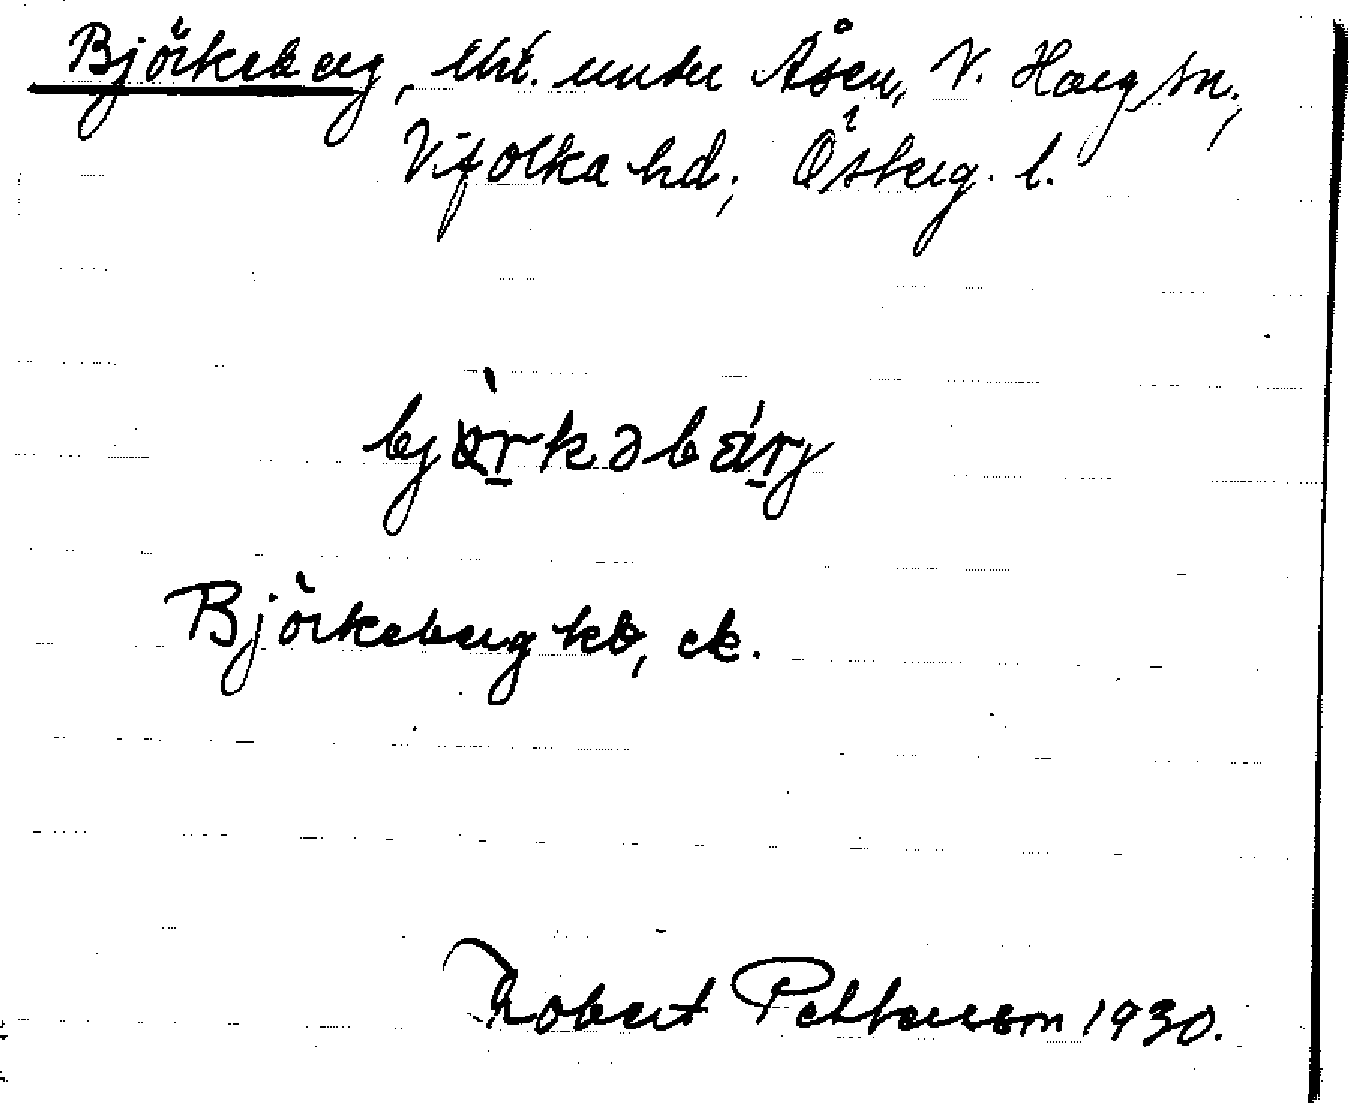 Björkeberg, lht. under Åsen, V. Harg sn.,
Vifolka hd., Österg. l.
bjö̀rkəbä́rj
Björkeberg kb, ek.
Robert Pettersson 1930.